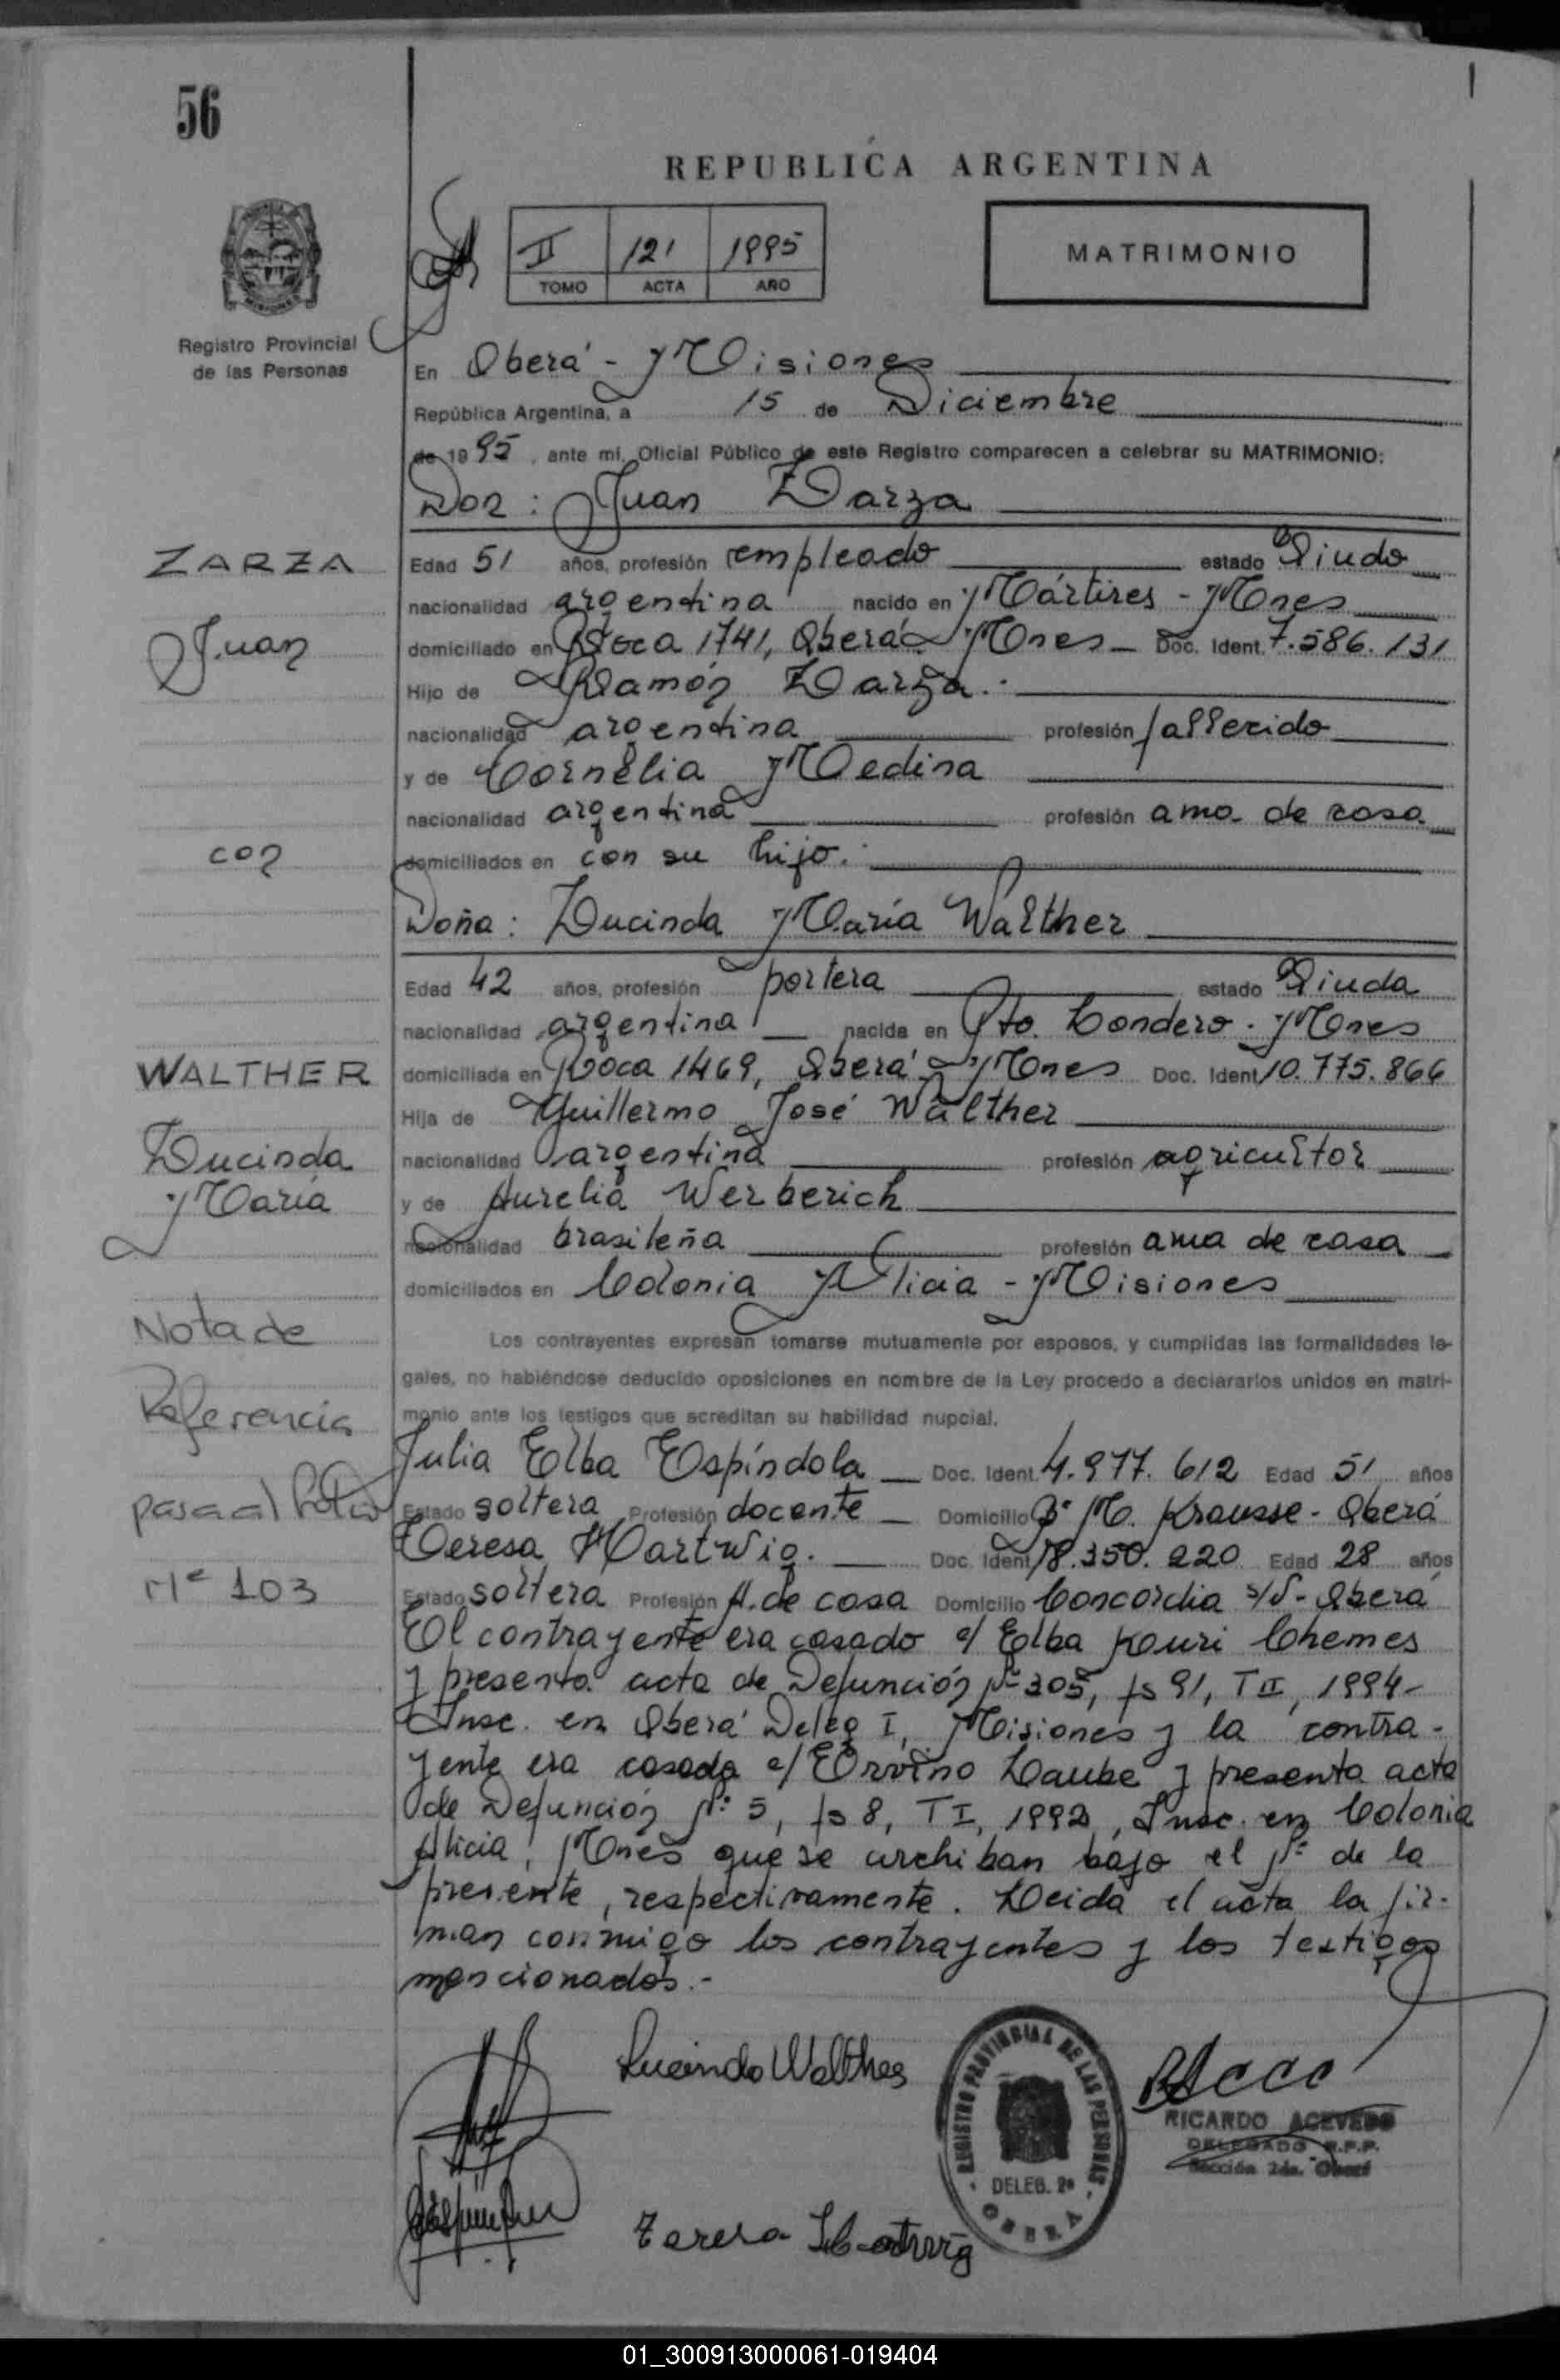 56
REPUBLICA ARGENTINA
II 121 1995
TOMO ACTA AÑO
MATRIMONIO
Registro Provincial
de las Personas
En Oberá - Misiones
República Argentina, a 15 de Diciembre
de 1995, ante mí, Oficial Público de este Registro comparecen a celebrar su MATRIMONIO:
Don: Juan Zarza
ZARZA
Juan
con
WALTHER
Lucinda
María
Nota de
Referencia
pasa al folio
Nº 103
Edad 51 años, profesión empleado estado Viudo
nacionalidad argentina nacido en Mártires - Mnes
domiciliado en Roca 1741, Oberá - Mnes Doc. Ident. 7.586.131
Hijo de Ramón Zarza.
nacionalidad argentina profesión fallecido
y de Cornelia Medina
nacionalidad argentina profesión ama de casa
domiciliados en con su hijo.
Doña: Lucinda María Walther
Edad 42 años, profesión portera estado Viuda
nacionalidad argentina nacida en Pto. Londero - Mnes
domiciliada en Roca 1469, Oberá - Mnes Doc. Ident 10.775.866
Hija de Guillermo José Walther
nacionalidad argentina profesión agricultor
y de Aurelia Werberich
nacionalidad brasileña profesión ama de casa
domiciliados en Colonia Alicia - Misiones
Los contrayentes expresan tomarse mutuamente por esposos, y cumplidas las formalidades le-
gales, no habiéndose deducido oposiciones en nombre de la Ley procedo a declararlos unidos en matri-
monio ante los testigos que acreditan su habilidad nupcial.
Julia Elba Espíndola Doc. Ident. 4.977.612 Edad 51 años
Estado soltera Profesión docente Domicilio Bº M. Krausse - Oberá
Teresa Hartwig. Doc. Ident 18.350.220 Edad 28 años
Estado soltera Profesión A. de casa Domicilio Concordia s/N - Oberá
El contrayente era casado c/ Elba Kouri Chemes
y presenta acta de Defunción Nº 305, fs 91, T II, 1994-
Insc. en Oberá Deleg I, Misiones y la contra-
yente era casada c/ Ervino Laube y presenta acta
de Defunción Nº 5, fs 8, T I, 1992, Insc. en Colonia
Alicia, Mnes que se archiban bajo el Nº de la
presente, respectivamente. Leida el acta la fir-
man conmigo los contrayentes y los testigos
mencionados.-
Lucinda Walther
REGISTRO PROVINCIAL DE LAS PERSONAS
DELEG. 2ª
OBERA
RICARDO ACEVEDO
DELEGADO R.P.P.
Sección 2da. Oberá
Teresa Hartwig
01_300913000061-019404